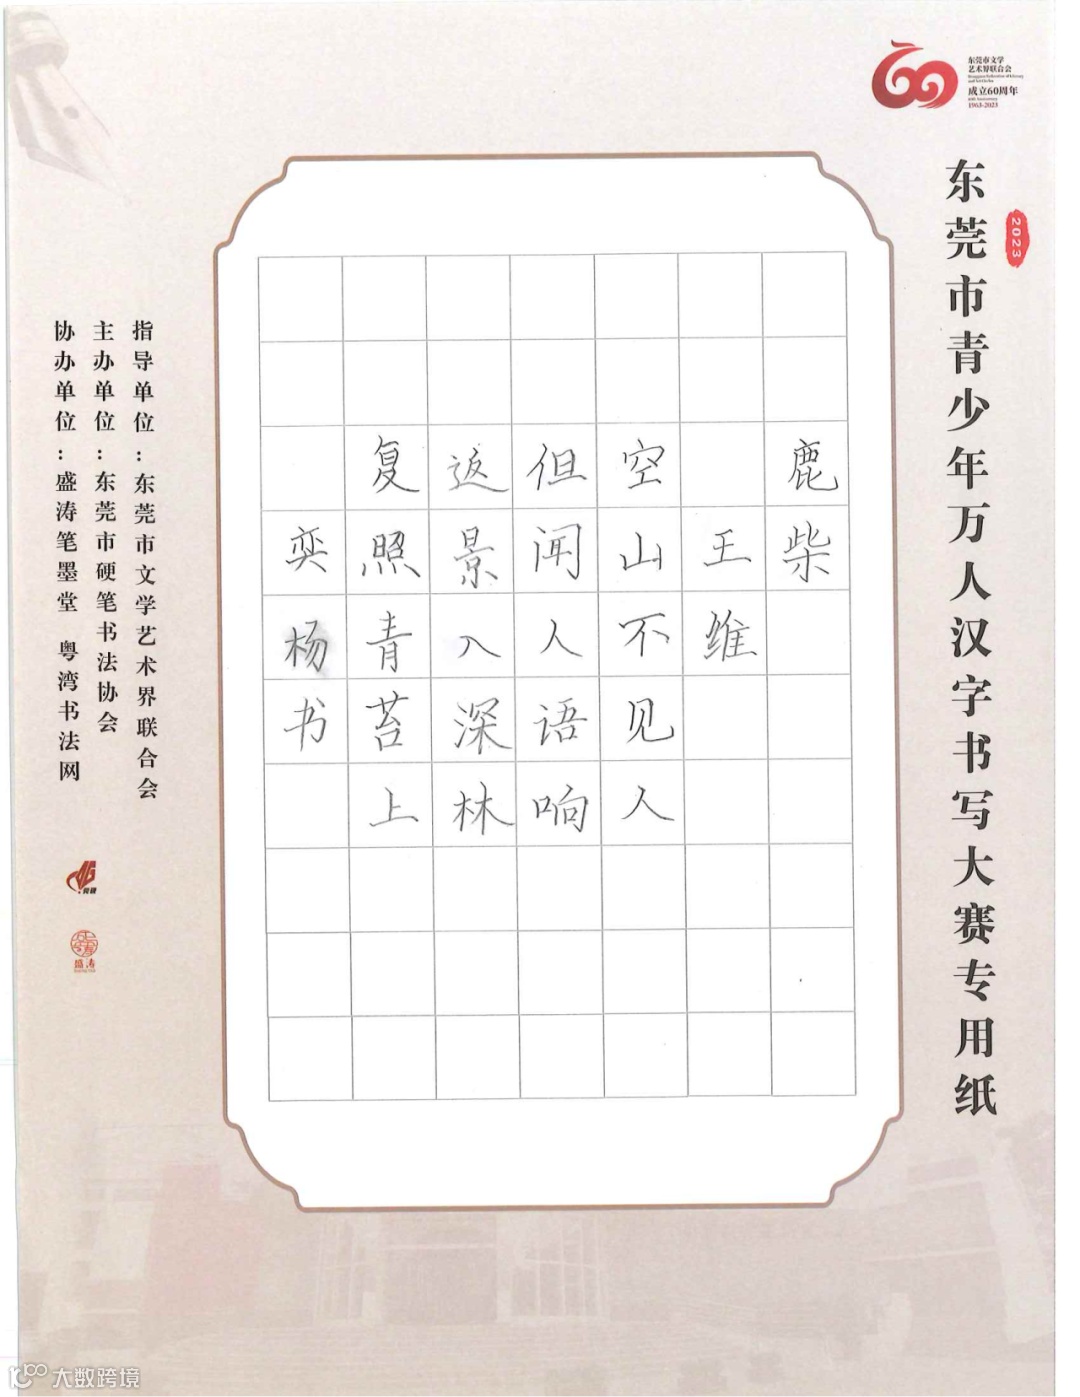 东莞市文学
艺术界联合会
Dongguan Federation of Literary
and Art Circles
成立60周年
60th Anniversary
1963-2023
2023
东莞市青少年万人汉字书写大赛专用纸
鹿柴
王维
空山不见人
但闻人语响
返景入深林
复照青苔上
奕杨书
指导单位：东莞市文学艺术界联合会
主办单位：东莞市硬笔书法协会
协办单位：盛涛笔墨堂 粤湾书法网
盛涛
大数跨境